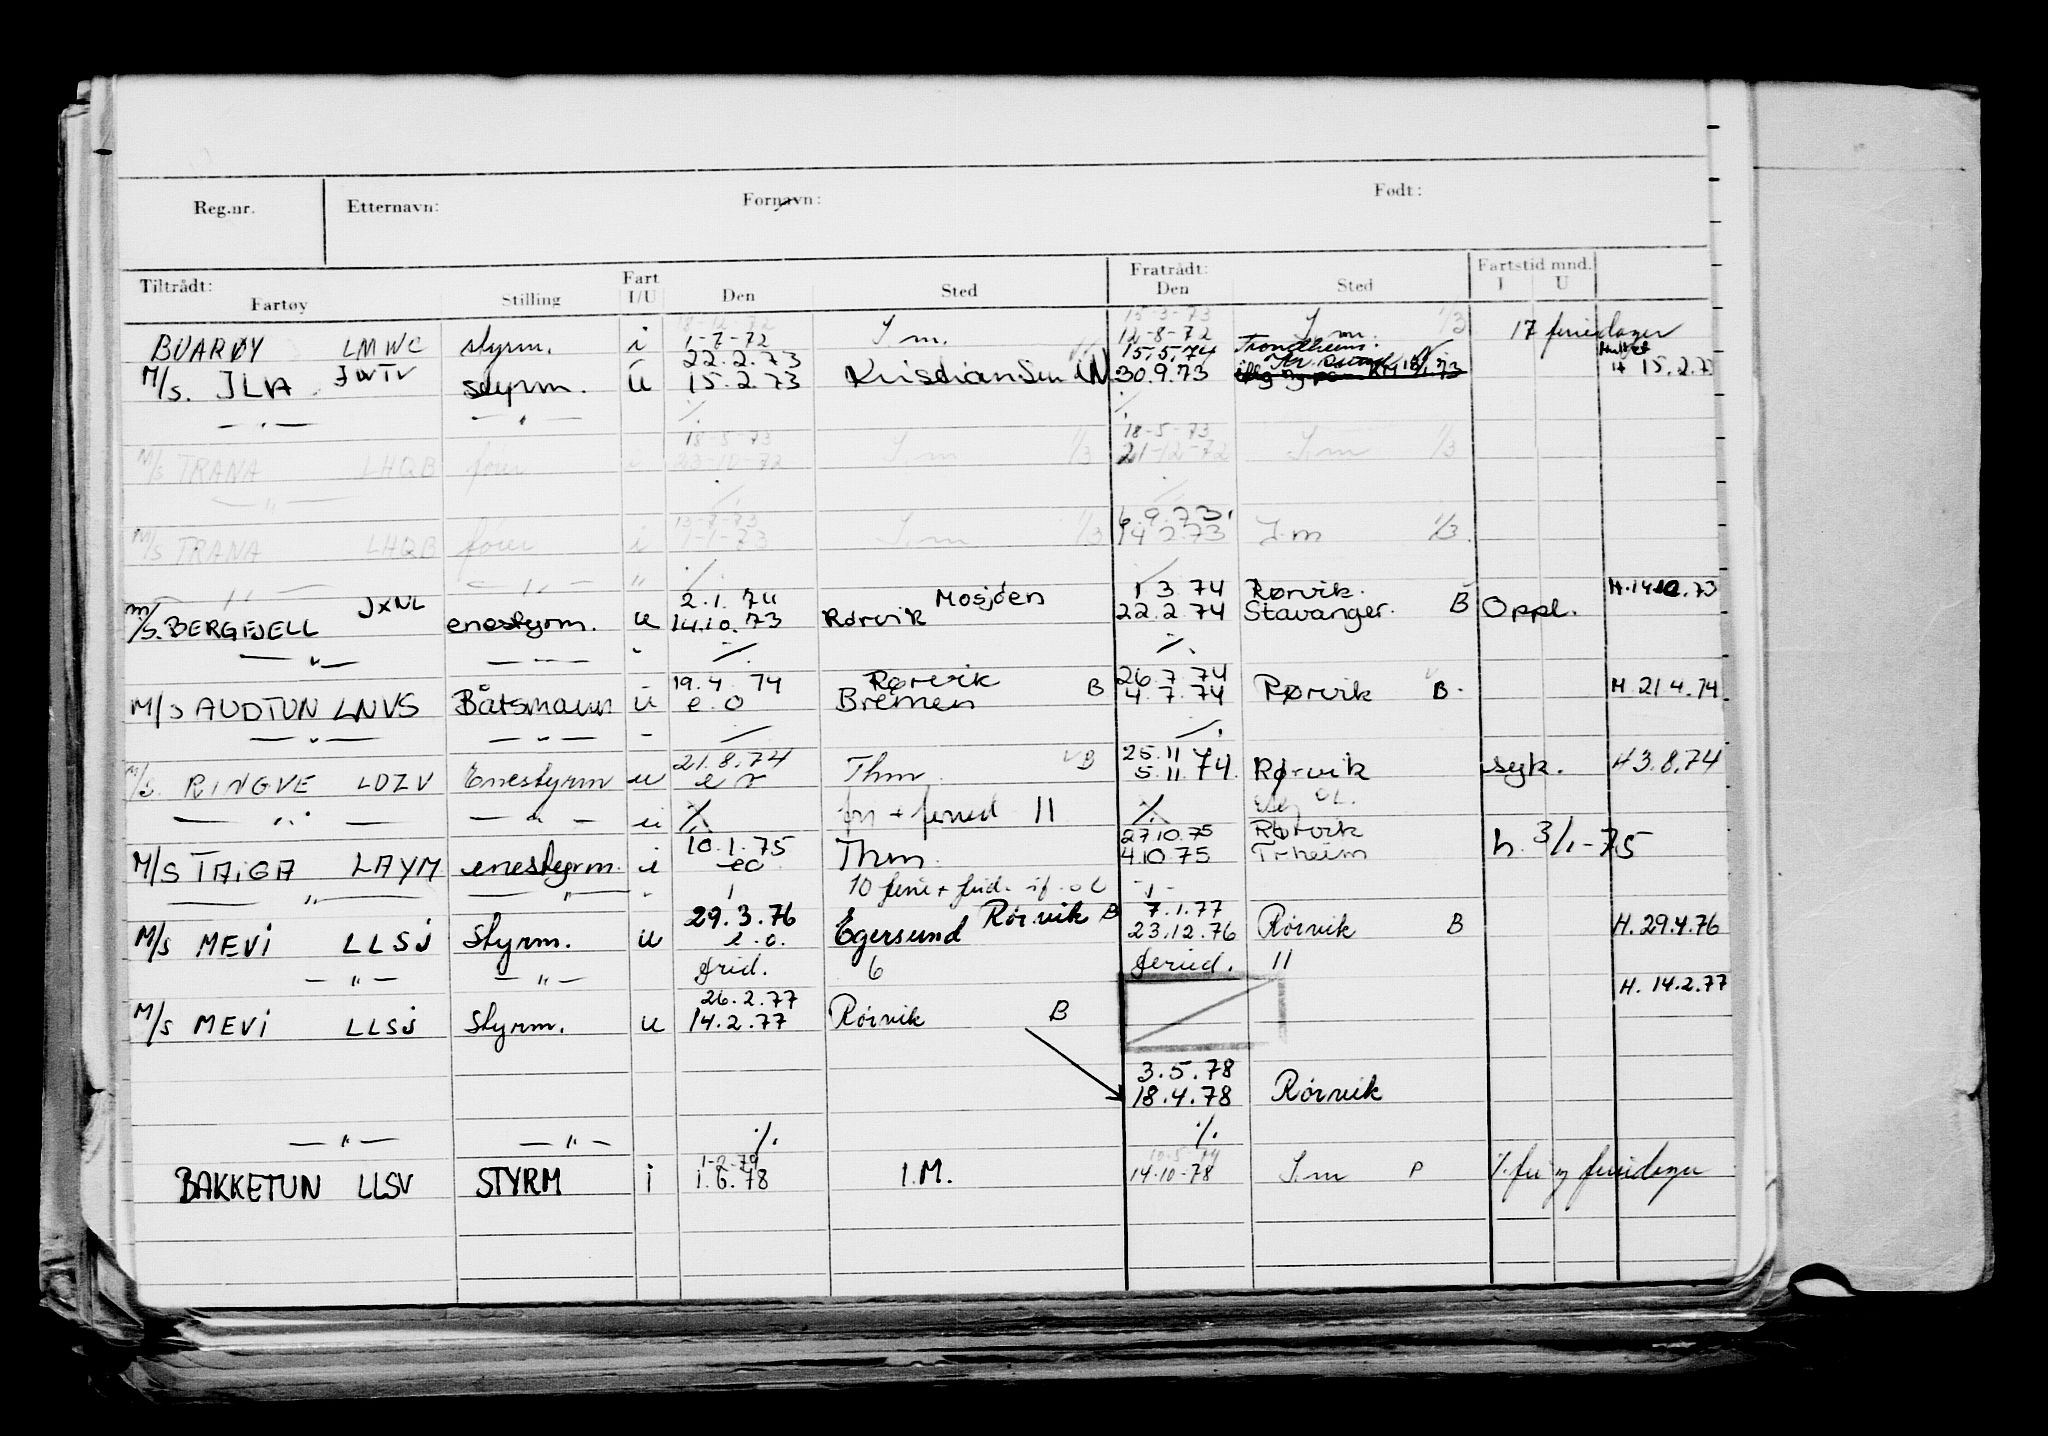 Reg.nr. Etternavn: Fornavn: Født:
Tiltrådt: Fart Fratrådt: Fartstid mnd.
Fartøy Stilling I/U Den Sted Den Sted I U
18-12-72 15-3-73
BUARØY LMWC styrm. i 1-7-72 I m. 12-8-72 I m. 1/3 17 feriedager
22.2.73 15.5.74 Trondheim.
M/s. JLVA JWTV styrm. u 15.2.73 Kristiansen 30.9.73 H 15.2.73
— " — — " — ./. ./.
18-5-73 18-5-73
M/s TRANA LHQB fører i 23-10-72 I.m 1/3 21-12-72 I.m 1/3
— " — ./.
13-7-73 6.9.73.
M/s TRANA LHQB fører i 1-1-73 I.m 1/3 14.2.73 I.m 1/3
— " — — " — " ./. ./.
JXNL 2.1.74 Mosjøen 1 3 74 Rørvik. H.14.10.73
m/s. BERGFJELL enestyrm. u 14.10.73 Rørvik 22.2.74 Stavanger. B Oppl.
— " — — " — " ./. ./.
19.4.74 Rørvik 26.7.74
M/s AUDTUN LNVS Båtsmann u e.o Bremen B 4.7.74 Rørvik B. H.21.4.74
— " — — " — - ./. ./.
21.8.74 25.11
M/s. RINGVE LDZV Enestyrm u Thm. B 5.11.74. Rørvik syk. H 3.8.74
— " — — " — ./. fri + feried 11 ./.
10.1.75 27.10.75 Rørvik
M/S TAIGA LAYM enestyrm. i eo Thm. 4.10.75 Trheim h. 3/1-75
— " — — " — " 10 ferie + frid.
29.3.76 Rørvik B 7.1.77
M/s MEVI LLSJ Styrm. u e.o. Egersund 23.12.76 Rørvik B H.29.4.76
— " — — " — frid. 6 feried. 11
26.2.77 H. 14.2.77
M/s MEVI LLSJ Styrm. u 14.2.77 Rørvik B
3.5.78
18.4.78 Rørvik
— " — — " — ./. ./.
1-2-79 10-5-79
BAKKETUN LLSV STYRM i 1.6.78 I.M. 14-10-78 I.m P ./. fri og feriedager